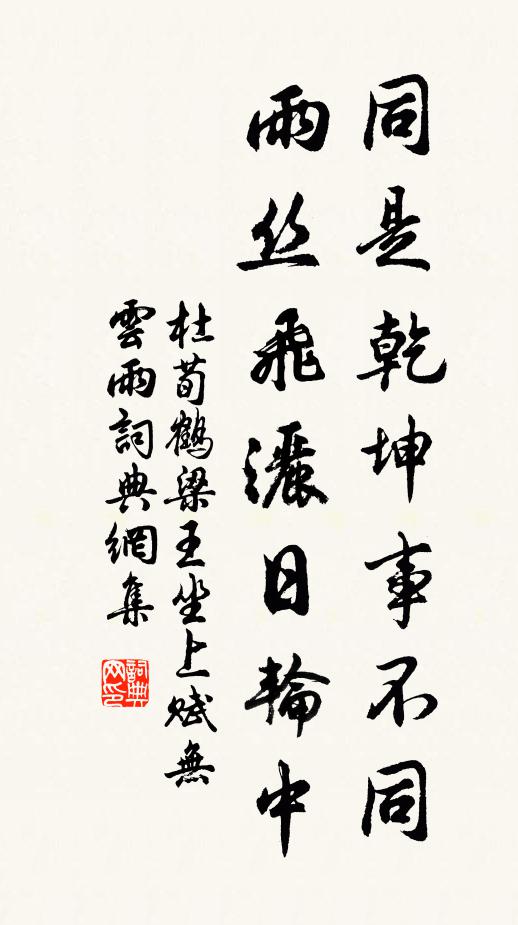 同是乾坤事不同
雨丝飛灑日輪中
杜荀鶴梁王坐上賦無
雲雨詞典網集
詞典
网印